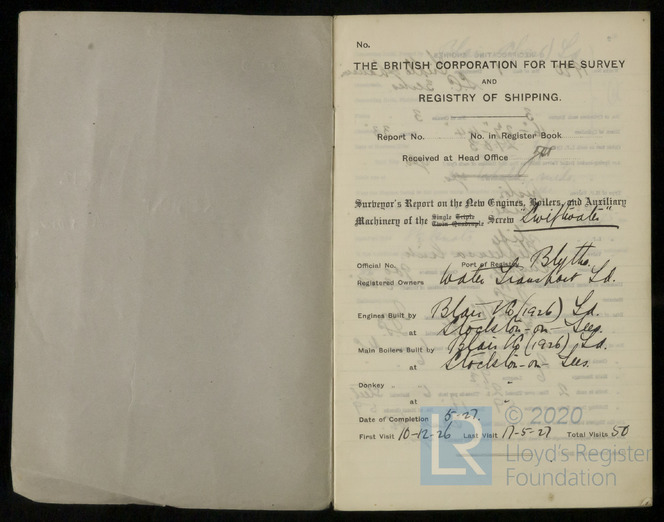 No.
THE BRITISH CORPORATION FOR THE SURVEY
AND
REGISTRY OF SHIPPING.
Report No. No. in Register Book
Received at Head Office
Surveyor's Report on the New Engines, Boilers, and Auxiliary
Machinery of the Single Triple Twin Quadruple Screw "Swiftwater"
Official No. Port of Registry Blyth.
Registered Owners Water Transport Ld.
Engines Built by Blair & Co (1926) Ld.
at Stockton-on-Tees.
Main Boilers Built by Blair & Co (1926) Ld.
at Stockton-on-Tees.
Donkey "
at "
Date of Completion 5-27.
First Visit 10-12-26 Last Visit 17-5-27 Total Visits 50
LR © 2020
Lloyd's Register
Foundation